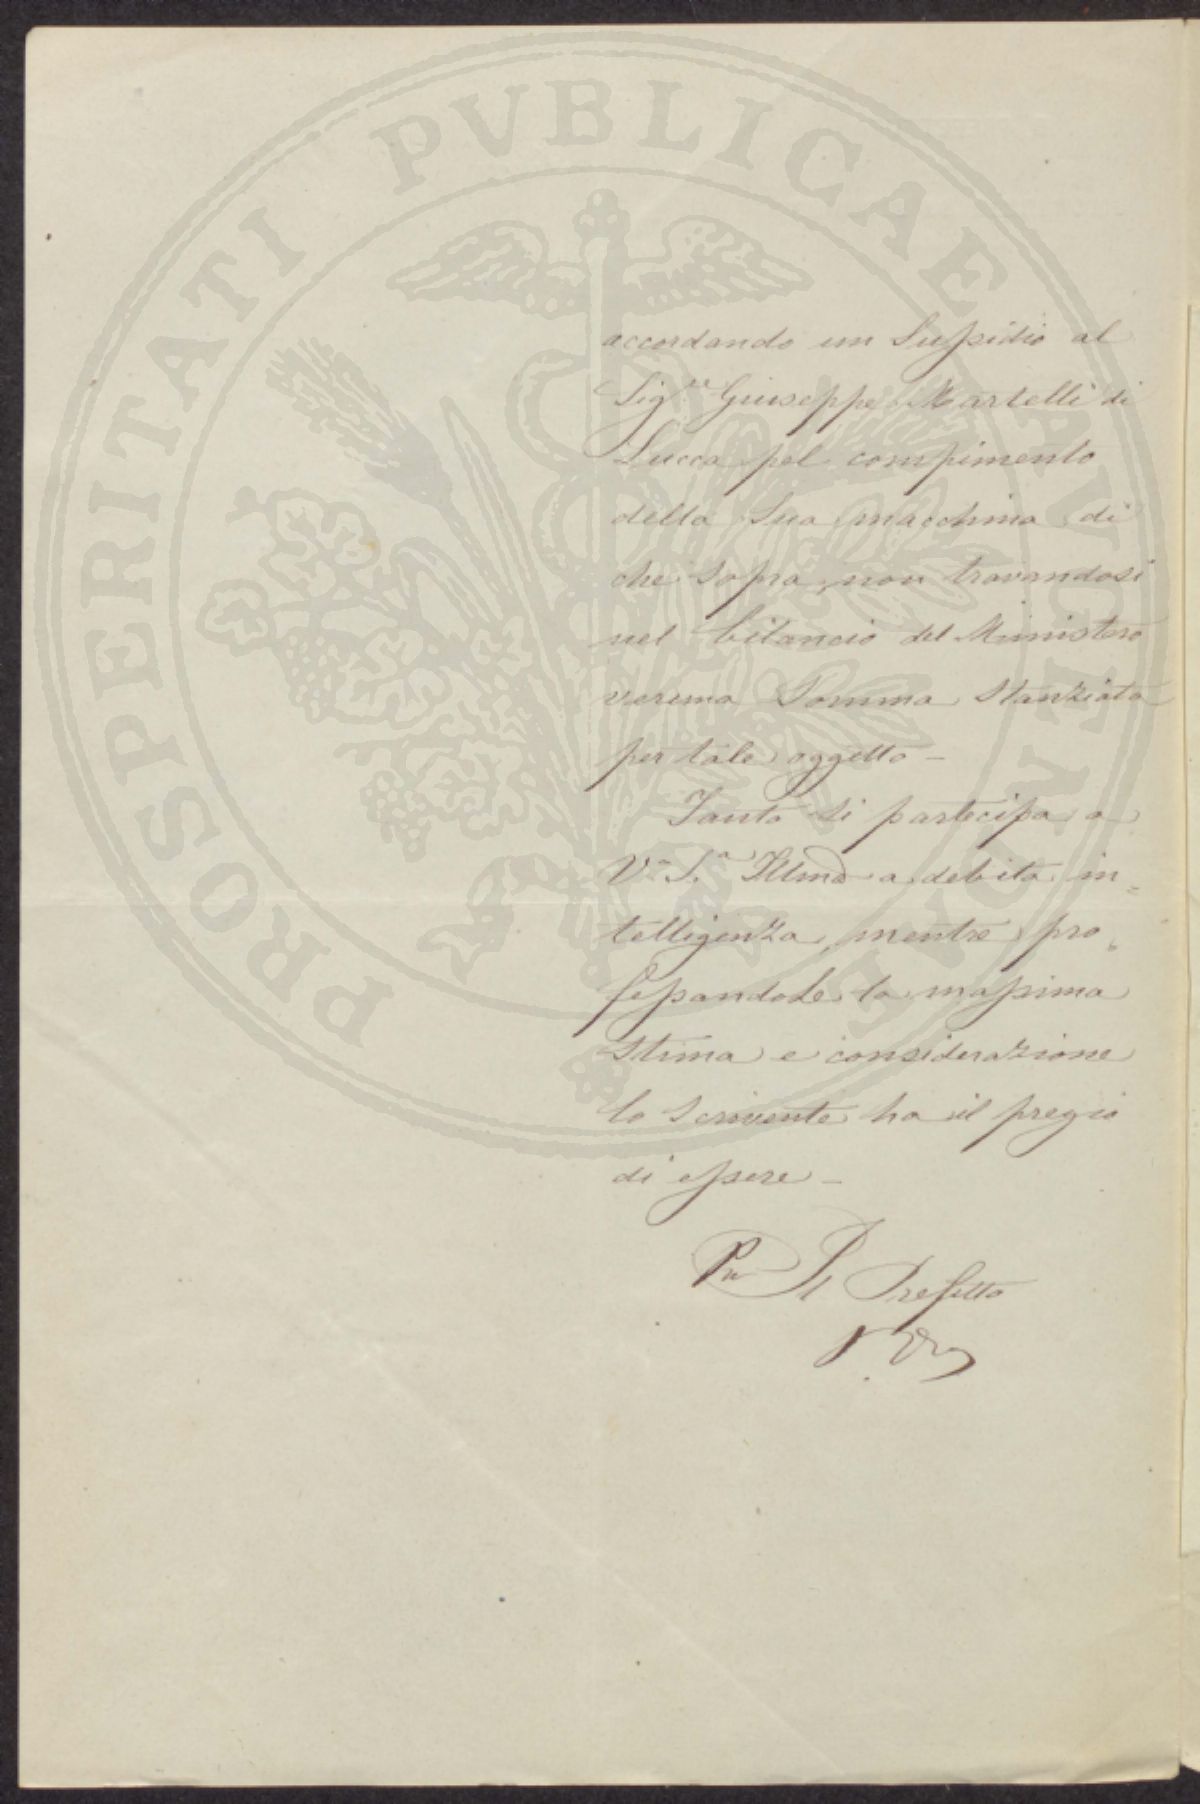 PROSPERITATI PVBLICAE AVGENDAE
accordando un Sussidio al
Sig.re Giuseppe Martelli di
Lucca pel compimento
della Sua macchina di
che Sopra, non trovandosi
nel bilancio del Ministero
veruna Somma Stanziata
per tale oggetto -
Tanto Si partecipa a
V.a S.a Illma a debita in=
telligenza, mentre pro=
fessandoLe la massima
Stima e considerazione
lo Scrivente ha il pregio
di essere -
Pel Prefetto